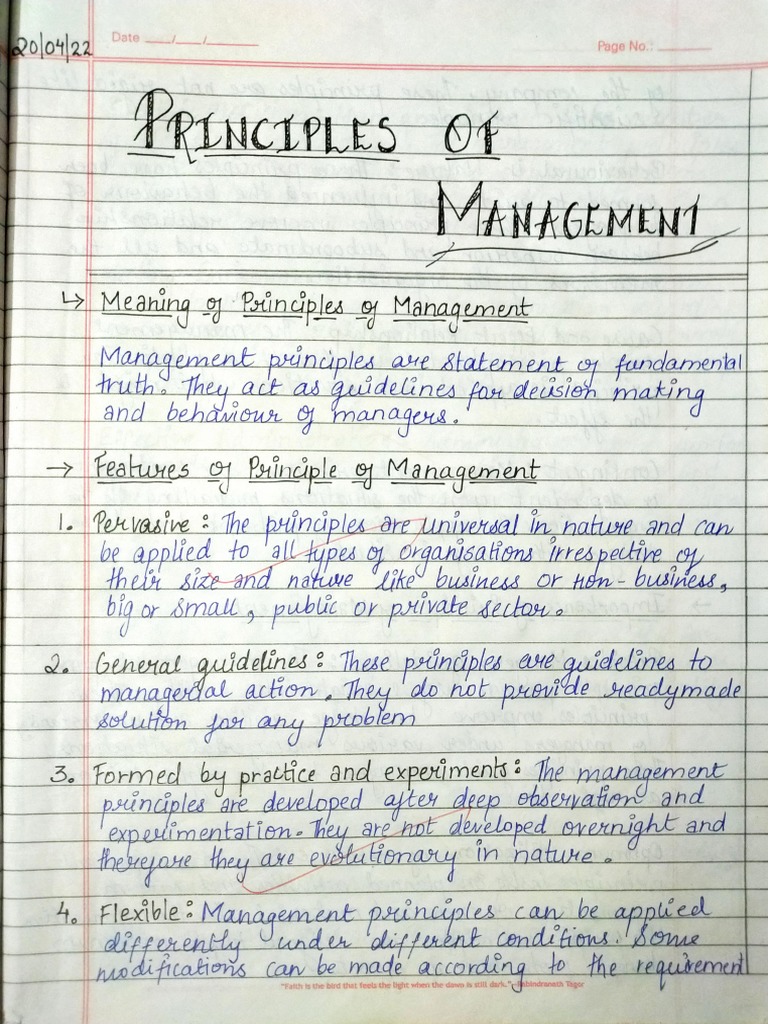 20/04/22
Date ___/___/______
Page No.: ______
PRINCIPLES OF
MANAGEMENT
↳ Meaning of Principles of Management
Management principles are statement of fundamental
truth. They act as guidelines for decision making
and behaviour of managers.
→ Features of Principle of Management
1. Pervasive: The principles are universal in nature and can
be applied to all types of organisations irrespective of
their size and nature like business or non-business,
big or small, public or private sector.
2. General guidelines: These principles are guidelines to
managerial action. They do not provide readymade
solution for any problem
3. Formed by practice and experiments: The management
principles are developed after deep observation and
experimentation. They are not developed overnight and
therefore they are evolutionary in nature.
4. Flexible: Management principles can be applied
differently under different conditions. Some
modifications can be made according to the requirement
"Faith is the bird that feels the light when the dawn is still dark." - Rabindranath Tagor